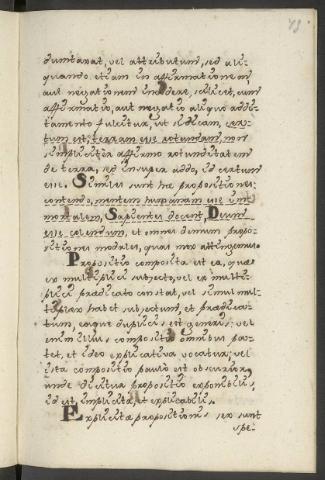 duntaxat, vel attributum, sed ali-
quando etiam in affirmationem,
aut negationem cadere, scilicet, cum
affirmatio, aut negatio aliquo addi-
tamento fulcitur, ut si dicam, cer-
tum est, terram esse rotundam, non
simpliciter affirmo rotunditatem
de terra, sed insuper addo, id certum
esse. Similes sunt hæ propositiones:
contendo, mentem humanam esse im-
mortalem, Sapientes decent, Deum
esse colendum, et omnes demum propo-
sitiones modales, quas mox attingemus.
Propositio composita est ea, quæ
ex multiplici subjecto, vel ex multi-
plici prædicato constat, vel simul mul-
tiplex habet subjectum, et prædica-
tum, eaque duplicis est generis; vel
enim illius compositio omnibus pa-
tet, et ideo explicativa vocatur; vel
ista compositio paulo est obscurior,
unde dicitur propositio exponibilis,
id est, implicita, et explicabilis.
Explicitæ propositionis sex sunt
spe-